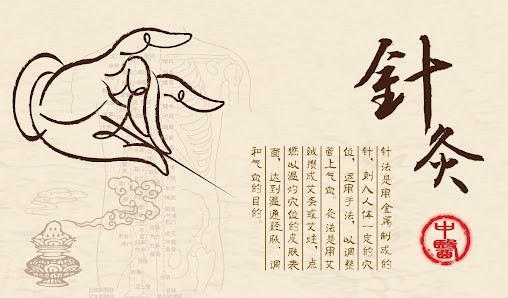 針灸
中醫
针法是用金属制成的
针，刺入人体一定的穴
位，运用手法，以调整
营卫气血。灸法是用艾
绒搓成艾条或艾炷，点
燃以温灼穴位的皮肤表
面，达到温通经脉、调
和气血的目的。